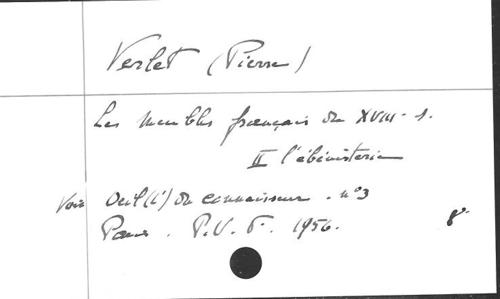 Verlet (Pierre)
Les meubles français du XVIII s.
II l'ébénisterie
Voir Oeil (L') du connaisseur. n°3
Paris. P.U.F. 1956. 8°